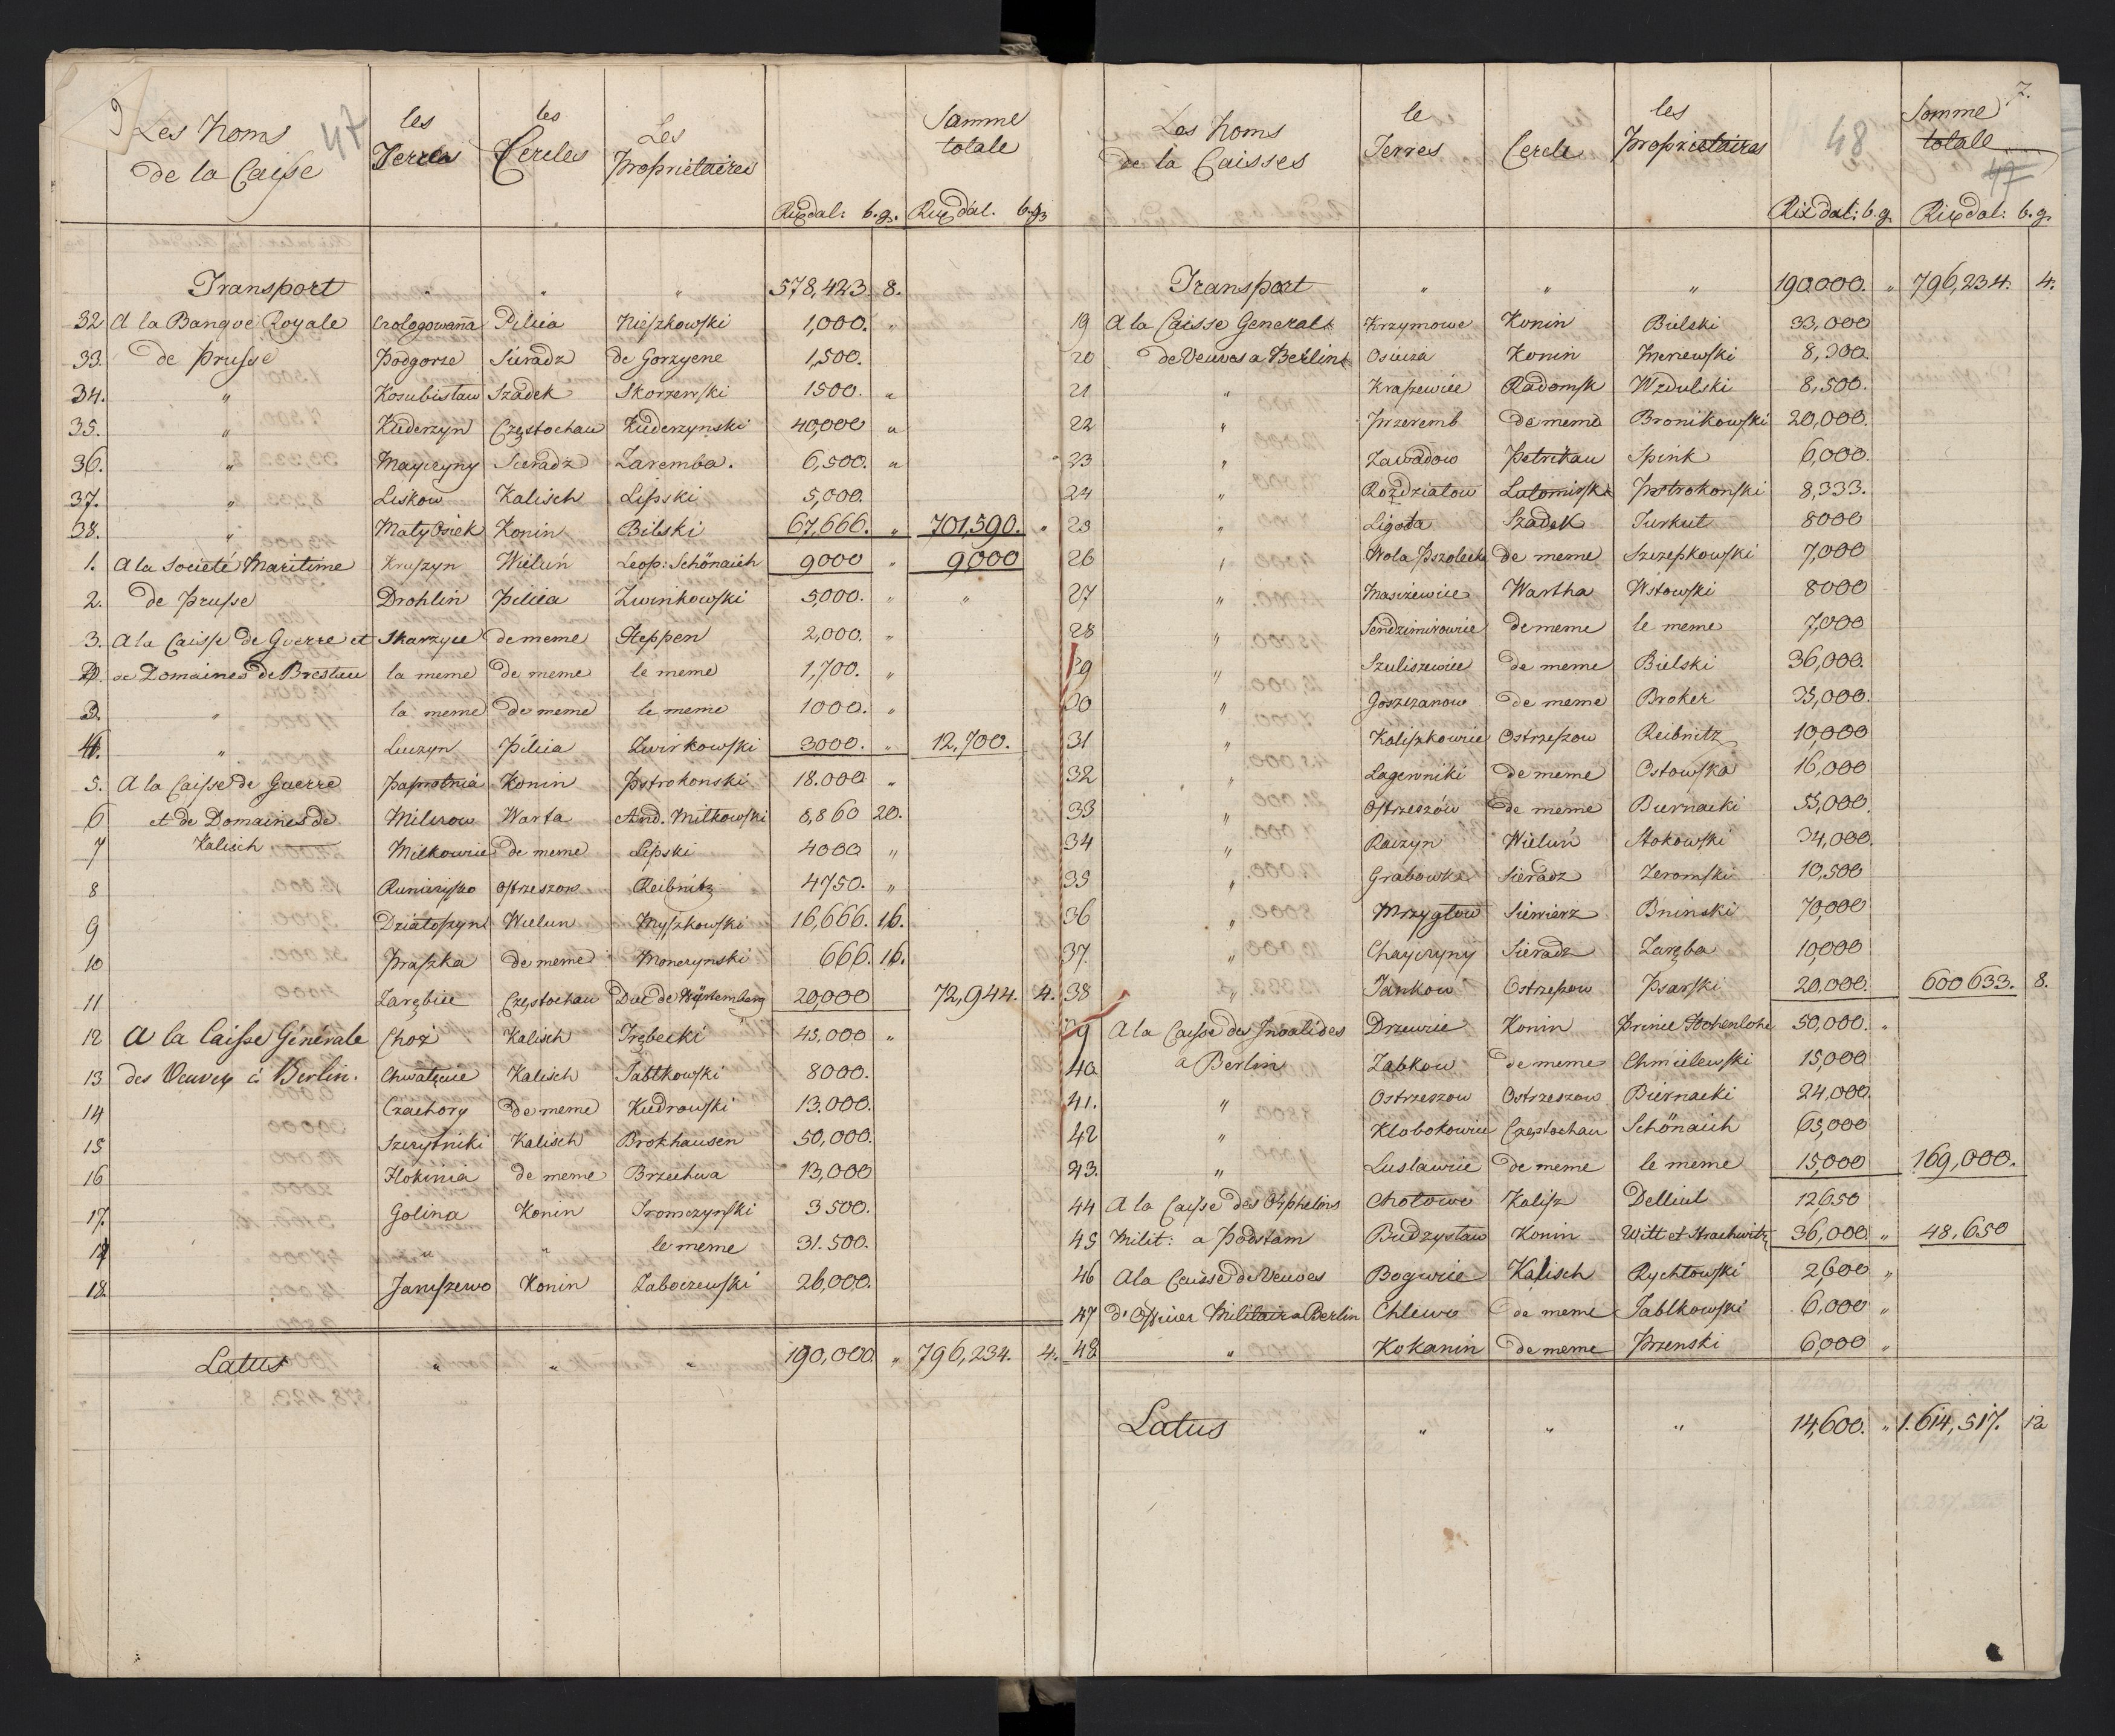 Les Noms de la Caisse 47 les Terres les Cercles Les Proprietaires Somme totale
Rixdal: b.g. Rixdal. b.g.
Transport " " " 578,423. 8.
32 A la Banque Royale Pilica 1,000. "
33. de Prusse Podgorze Sieradz de Gorzyene 1,500.
34. " Kozubistaw Szadek Skorzewski 1500. "
35. " Kuderzyn Częstochau Kuderzynski 40,000 "
36. " Mayczyny Sieradz Zaremba. 6,500. "
37. " Liskow Kalisch Lipski 5,000.
38. " Maty Osiek Konin Bilski 67,666. " 701,590. "
1. A la Societé Maritime Kruszyn Wieluń Leop: Schönaich 9000 " 9000
2. de Prusse Drohlin Pilica Zwinkowski 5,000. " "
3. A la Caisse de Guerre et Skarzyce de meme Steppen 2,000. "
de Domaines de Breslau la meme de meme le meme 1,700. "
3. " la meme de meme le meme 1000. "
4. " Luczyn Pilica Zwirkowski 3000. " 12,700.
5. A la Caisse de Guerre Paprotnia Konin Pstrokonski 18.000 "
6 et de Domaines de Milerow Warta And. Milkowski 8,860 20.
7 Kalisch Milkowie de meme Lipski 4000 "
8 Ostrzeszow Reibnitz 4750. "
9 Dziatoszyn Wielun Myszkowski 16,666. 16.
10 Praszka de meme Monczynski 666. 16.
11 Zarębice Częstochau Duc de Würtemberg 20,000 72,944. 4.
12 A la Caisse Générale Choż Kalisch Trębecki 45,000 "
13 des Veuves à Berlin. Chwalęcie Kalisch Jabtkowski 8000.
14 Czachory de meme Kiedrowski 13.000.
15 Szczytniki Kalisch Brokhausen 50,000.
16 Flokinia de meme Brzechwa 13,000
17. Golina Konin Tromczynski 3500.
" " le meme 31.500.
18. Janiszewo Konin Zaboczewski 26,000.
Latus " " " 190,000 " 796,234. 4.
Les Noms de la Caisses le Terres Cercle les Proprietaires 48 Somme totale 7. 47
Rixdal: b.g. Rixdal: b.g.
Transport " " " 190,000. " 796,234. 4.
19 A la Caisse Generale Krzymowe Konin Bielski 33,000
20 de Veuves a Berlin Osiecza Konin 8,300.
21 " Kraszewice Radomsk Wzdulski 8,500.
22 " Przeremb de meme Bronikowski 20,000.
23 " Zawadow Petrikau Spink 6,000.
24 " Rozdziatow Lutomirsk Pstrokonski 8,333.
25 " Ligota Szadek Turkut 8000
26 " Wola Pszolecka de meme Szczepkowski 7,000
27 " Masizewice Wartha Wstowski 8000
28 " Sendzimirowie de meme le meme 7,000
29 " Szuliszewice de meme Bielski 36,000.
30 " Goszczanow de meme Broker 35,000.
31 " Koliszkowie Ostrzeszow Reibnitz 10,000
32 " Lagewniki de meme Ostowska 16,000
33 " Ostrzeszów de meme Biernacki 55,000.
34 " Raczyn Wieluń Stokowski 34,000.
35 " Grabowka Sieradz Zeromski 10,500
36 " Mrzyglow Siewierz Bninski 70,000
37. " Chayczyny Sieradz Zaręba 10,000
38 " Jankow Ostrzeszow Psarski 20,000. 600633. 8.
39 A la Caisse des Invalides Drzewie Konin Prince Hohenlohe 50,000. "
40 a Berlin Zabkow de meme Chmielewski 15,000
41. " Ostrzeszow Ostrzeszow Biernacki 24,000.
42 " Klobokowice Częstochau Schönaich 65,000
43. " Luslawice de meme le meme 15,000 169,000.
44 A la Caisse des Orphelins Chotowo Kalisz Delliul 12650
45 Milit: a Podstam Budzystaw Konin Witt et Strachwitz 36,000. " 48,650
46 A la Caisse de Veuves Bogwice Kalisch Rychtowski 2,600 "
47 d'Officier Militair a Berlin Chlewo de meme Jablkowski 6,000 "
48 " Kokanin de meme Przenski 6,000 "
Latus " " " 14,600. " 1.614,517. 12